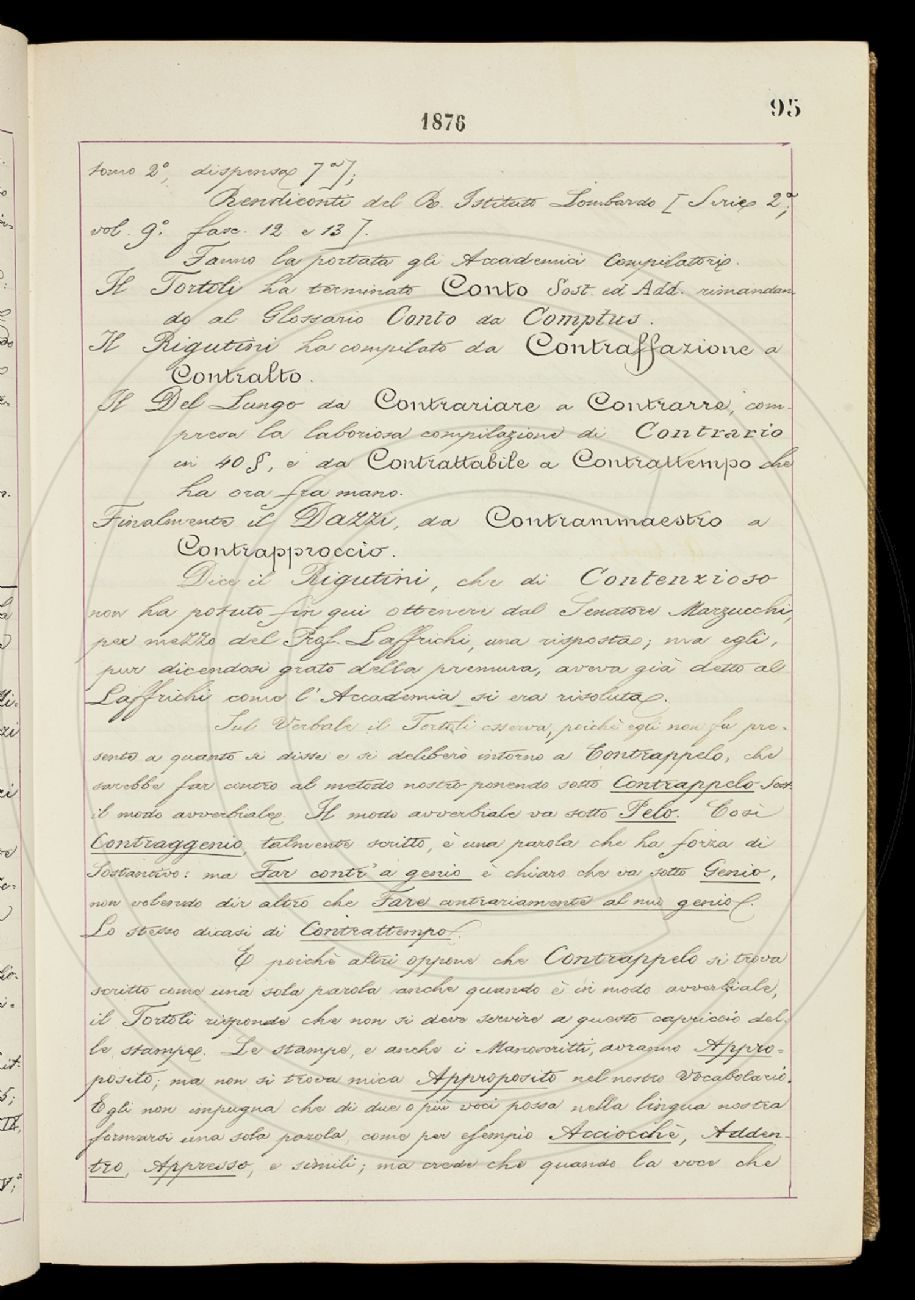 95
1876
tomo 2°, dispensa 7ª];
Rendiconti del R. Istituto Lombardo [Serie 2ª,
vol. 9° fasc. 12 e 13].
Fanno la portata gli Accademici Compilatori.
Il Tortoli ha terminato Conto Sost. ed Add. rimandan-
do al Glossario Conto da Comptus.
Il Rigutini ha compilato da Contraffazione a
Contralto.
Il Del Lungo da Contrariare a Contrarre, com-
presa la laboriosa compilazione di Contrario
in 40 §, e da Contrattabile a Contrattempo che
ha ora fra mano.
Finalmente il Dazzi, da Contrammaestro a
Contrapproccio.
Dice il Rigutini, che di Contenzioso
non ha potuto fin qui ottenere dal Senatore Marzucchi,
per mezzo del Prof. Laffrichi, una risposta; ma egli,
pur dicendosi grato della premura, aveva già detto al
Laffrichi come l'Accademia si era risoluta.
Sul Verbale il Tortoli osserva, poichè egli non fu pre-
sente a quanto si disse e si deliberò intorno a Contrappelo, che
sarebbe far contro al metodo nostro ponendo sotto Contrappelo Sost.
il modo avverbiale. Il modo avverbiale va sotto Pelo. Così
Contraggenio, talmente scritto, è una parola che ha forza di
Sostantivo: ma Far contr' a genio è chiaro che va sotto Genio,
non volendo dir altro che Fare contrariamente al mio genio.
Lo stesso dicasi di Contrattempo.
E poichè altri oppone che Contrappelo si trova
scritto come una sola parola anche quando è in modo avverbiale,
il Tortoli risponde che non si deve servire a questo capriccio del-
le stampe. Le stampe, e anche i Manoscritti, avranno Appro-
posito; ma non si trova mica Approposito nel nostro Vocabolario.
Egli non impugna che di due o più voci possa nella lingua nostra
formarsi una sola parola, come per esempio Acciocchè, Adden-
tro, Appresso, e simili; ma crede che quando la voce che